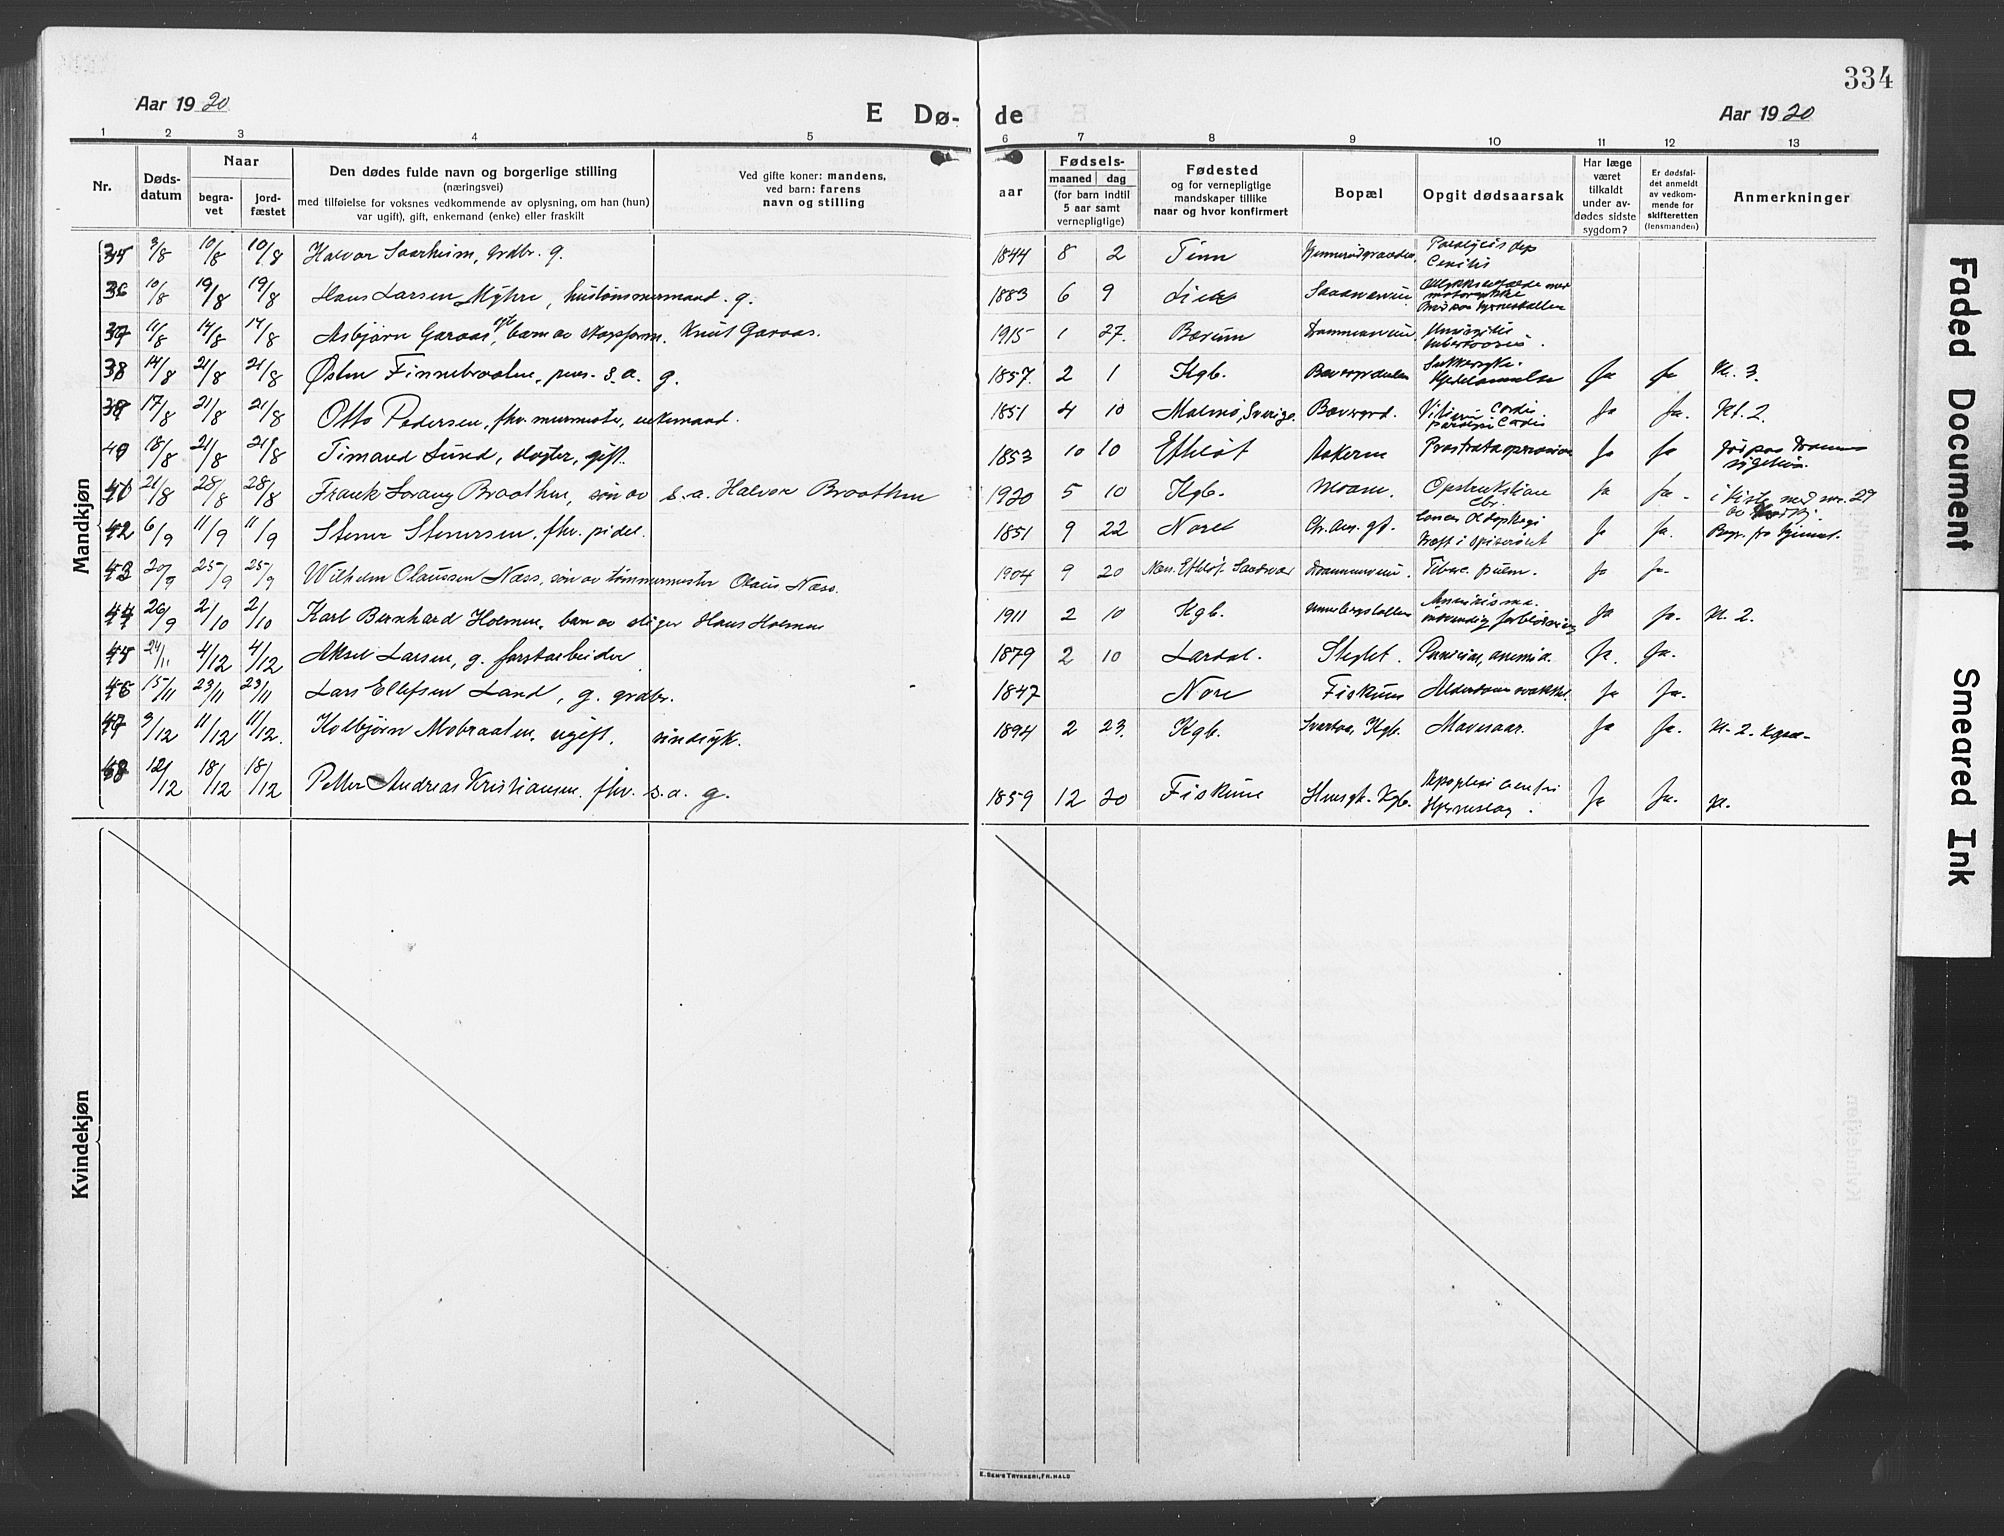 334
Aar 1920
E Dø-
de
Aar 1920
1 2 3 4 5 6 7 8 9 10 11 12 13
Nr.
Døds-
datum
Naar
begra-
vet
jord-
fæstet
Den dødes fulde navn og borgerlige stilling
(næringsvei)
med tilføielse for voksnes vedkommende av oplysning, om han (hun)
var ugift), gift, enkemand (enke) eller fraskilt
Ved gifte koner: mandens,
ved barn: farens
navn og stilling
aar
Fødsels-
maaned dag
(for barn indtil
5 aar samt
vernepligtige)
Fødested
og for vernepligtige
mandskaper tillike
naar og hvor konfirmert
Bopæl
Opgit dødsaarsak
Har læge
været
tilkaldt
under av-
dødes sidste
sygdom?
Er dødsfal-
det anmeldt
av vedkom-
mende for
skifteretten
(lensmanden)
Anmerkninger
Mandkjøn
35 9/8 10/8 10/8 Halvor Saarheim, grdbr. g. 1844 8 2 Tinn
36 10/8 19/8 19/8 Hans Larsen Myhre, hustømmermand. g. 1883 6 9 Lier
37 11/8 14/8 14/8 Asbjørn Garaas, barn av Knut Garaas. 1915 1 27. Bærum
38 14/8 21/8 21/8 Østen Finnebraaten, pens. s.a. g. 1857. 2 1 Kgb. Sukkersyke. ja ja Kl. 3.
39 17/8 21/8 21/8 Otto Pedersen, fhv. murmester, enkemand. 1851 4 10 Malmø, Sverige. Vitium Cordis ja ja. Kl. 2.
40 18/8 21/8 21/8 Timand Lund, slagter, gift. 1853 10 10 Efteløt Prostrataoperasion ja ja
41 21/8 28/8 28/8 Frank Sørang Braathen, søn av s.a. Halvor Braathen 1920 5 10 Kgb. Moane. ja ja. i kiste med nr. 29
42 6/9 11/9 11/9 Stener Stenersen, fhv. pidel. 1851 9 22 Nore Kræft i spiserøret ja ja. Begr. fra hjemmet.
43 20/9 25/9 25/9 Wilhelm Claussen Næss, søn av tømmermester Olaus Næss. 1904 9 20 Drammensveien. Tiberc. pulm. ja ja.
44 26/9 2/10 2/10 Karl Bernhard Holmen, barn av stiger Hans Holmen 1911 2 10 Kgb. ja ja. Kl. 2.
45 24/11 4/12 4/12 Aksel Larsen, g. forstarbeider 1879 2 10 Lardal. Steglet. Perniciøs, anemia. ja. ja.
46 15/11 23/11 23/11 Lars Ellefsen Land, g. grdbr. 1847 Nore Fiskum Alderdomssvakhet. ja ja.
47 3/12 11/12 11/12. Kolbjørn Mobraaten, ugift, sindssyk. 1894 2 23. Kgb. Kgb. Mavesaar. ja ja. Kl. 2.
48 12/12 18/12 18/12 Petter Andreas Kristiansen, fhv. s.a. g. 1859 12 20 Fiskum Kgb. Apoplexi cerebri Hjerneslag. ja ja. Kl.
Kvindekjøn
E. SEM'S TRYKKERI, FR.HALD
Faded Document
Smeared Ink